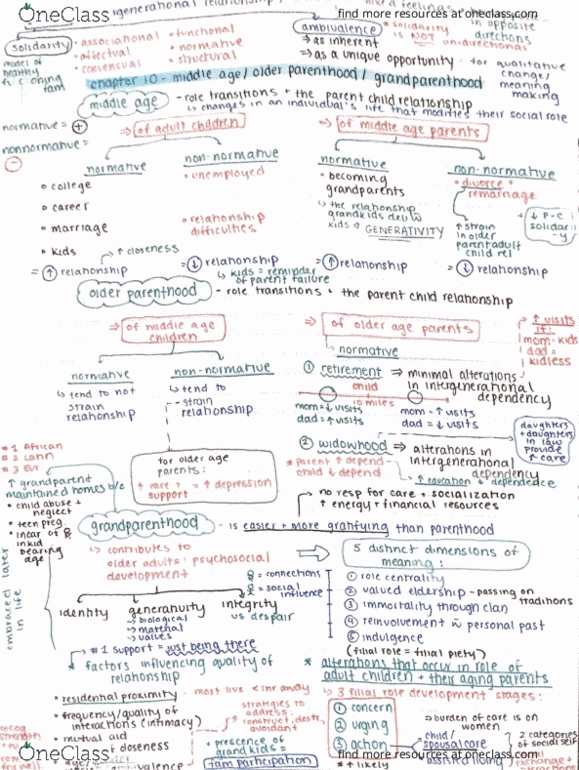 OneClass
find more resources at oneclass.com
generational relationship
in opposite
directions
solidarity
• associational
• functional
• affectual
• normative
• consensual
• structural
model of
healthy
ambivalence
• solidarity
is NOT unidirectional
⇒ as inherent
⇒ as a unique opportunity
for qualitative
change/
meaning
making
chapter 10 - middle age/older parenthood/grandparenthood
middle age - role transitions + the parent child relationship
↳ changes in an individual's life that modifies their social role
normative = +
nonnormative =
-
⇒ of adult children
⇒ of middle age parents
normative
• college
• career
• marriage
• kids
↑ closeness
= ↑ relationship
non-normative
• unemployed
• relationship
difficulties
= ↓ relationship
↳ kids = reminder
of parent failure
normative
• becoming
grandparents
↳ the relationship
grandkids dev w
kids
GENERATIVITY
= ↑ relationship
non-normative
• divorce +
remarriage
↑ strain
in older
parent adult
child rel
+
↓ P-C
solidari
-y
= ↓ relationship
older parenthood - role transitions + the parent child relationship
⇒ of middle age
children
⇒ of older age parents
normative
↳ tend to not
strain
relationship
non-normative
↳ tend to
strain
relationship
for older age
parents:
↑ care + = ↑ depression
support
normative
① retirement ⇒ minimal alterations
in intergenerational
dependency
child
10 miles
mom = ↓ visits
dad = ↑ visits
mom = ↑ visits
dad = ↓ visits
↑ visits
if:
mom = kids
dad =
kidless
② widowhood ⇒ alterations in
intergenerational
dependency
* parent ↑ depend -
child ↓ depend
↑ education ↓ dependence
daughters
+ daughters
in law
provide
↑ care
#1 African
#2 Latin
#3 Eur
↑ grandparent
maintained homes b/c
• child abuse +
neglect
• teen preg.
• incar of
in kid
bearing
age
embraced later
in life
→ no resp for care + socialization
↑ energy + financial resources
grandparenthood - is easier + more gratifying than parenthood
↳ contributes to
older adults' psychosocial
development
= connections
= social
influence
identity
generativity
↳ biological
↳ material
↳ values
integrity
vs despair
#1 support = just being there
5 distinct dimensions of
meaning:
① role centrality
② valued eldership - passing on
traditions
③ immortality through clan
④ reinvolvement w personal past
⑤ indulgence
(filial role = filial piety)
* factors influencing quality of
relationship
• residential proximity - most live < 1hr away
• frequency/quality of
interactions (intimacy)
• mutual aid
closeness
strategies to
address:
avoidant
+ presence of
grandkids =
fam participation
* alterations that occur in role of
adult children + their aging parents
↳ 3 filial role development stages:
① concern
② urging
③ action
* + likely
⇒ burden of care is on
women
child/
spousal care
assisted living
2 categories
of social self
OneClass
find more resources at oneclass.com